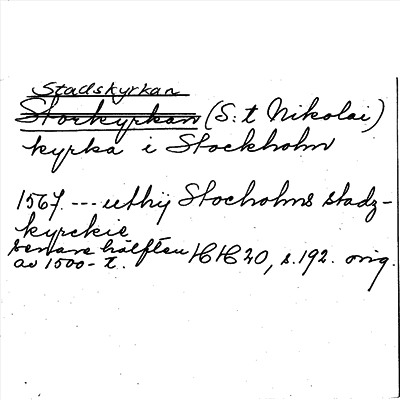 Stadskyrkan
Storkyrkan (S:t Nikolai)
kyrka i Stockholm
1567. --- uthij Stocholms stadz-
kyrckie
senare hälften
av 1500-t. HH 20, s. 192. orig.